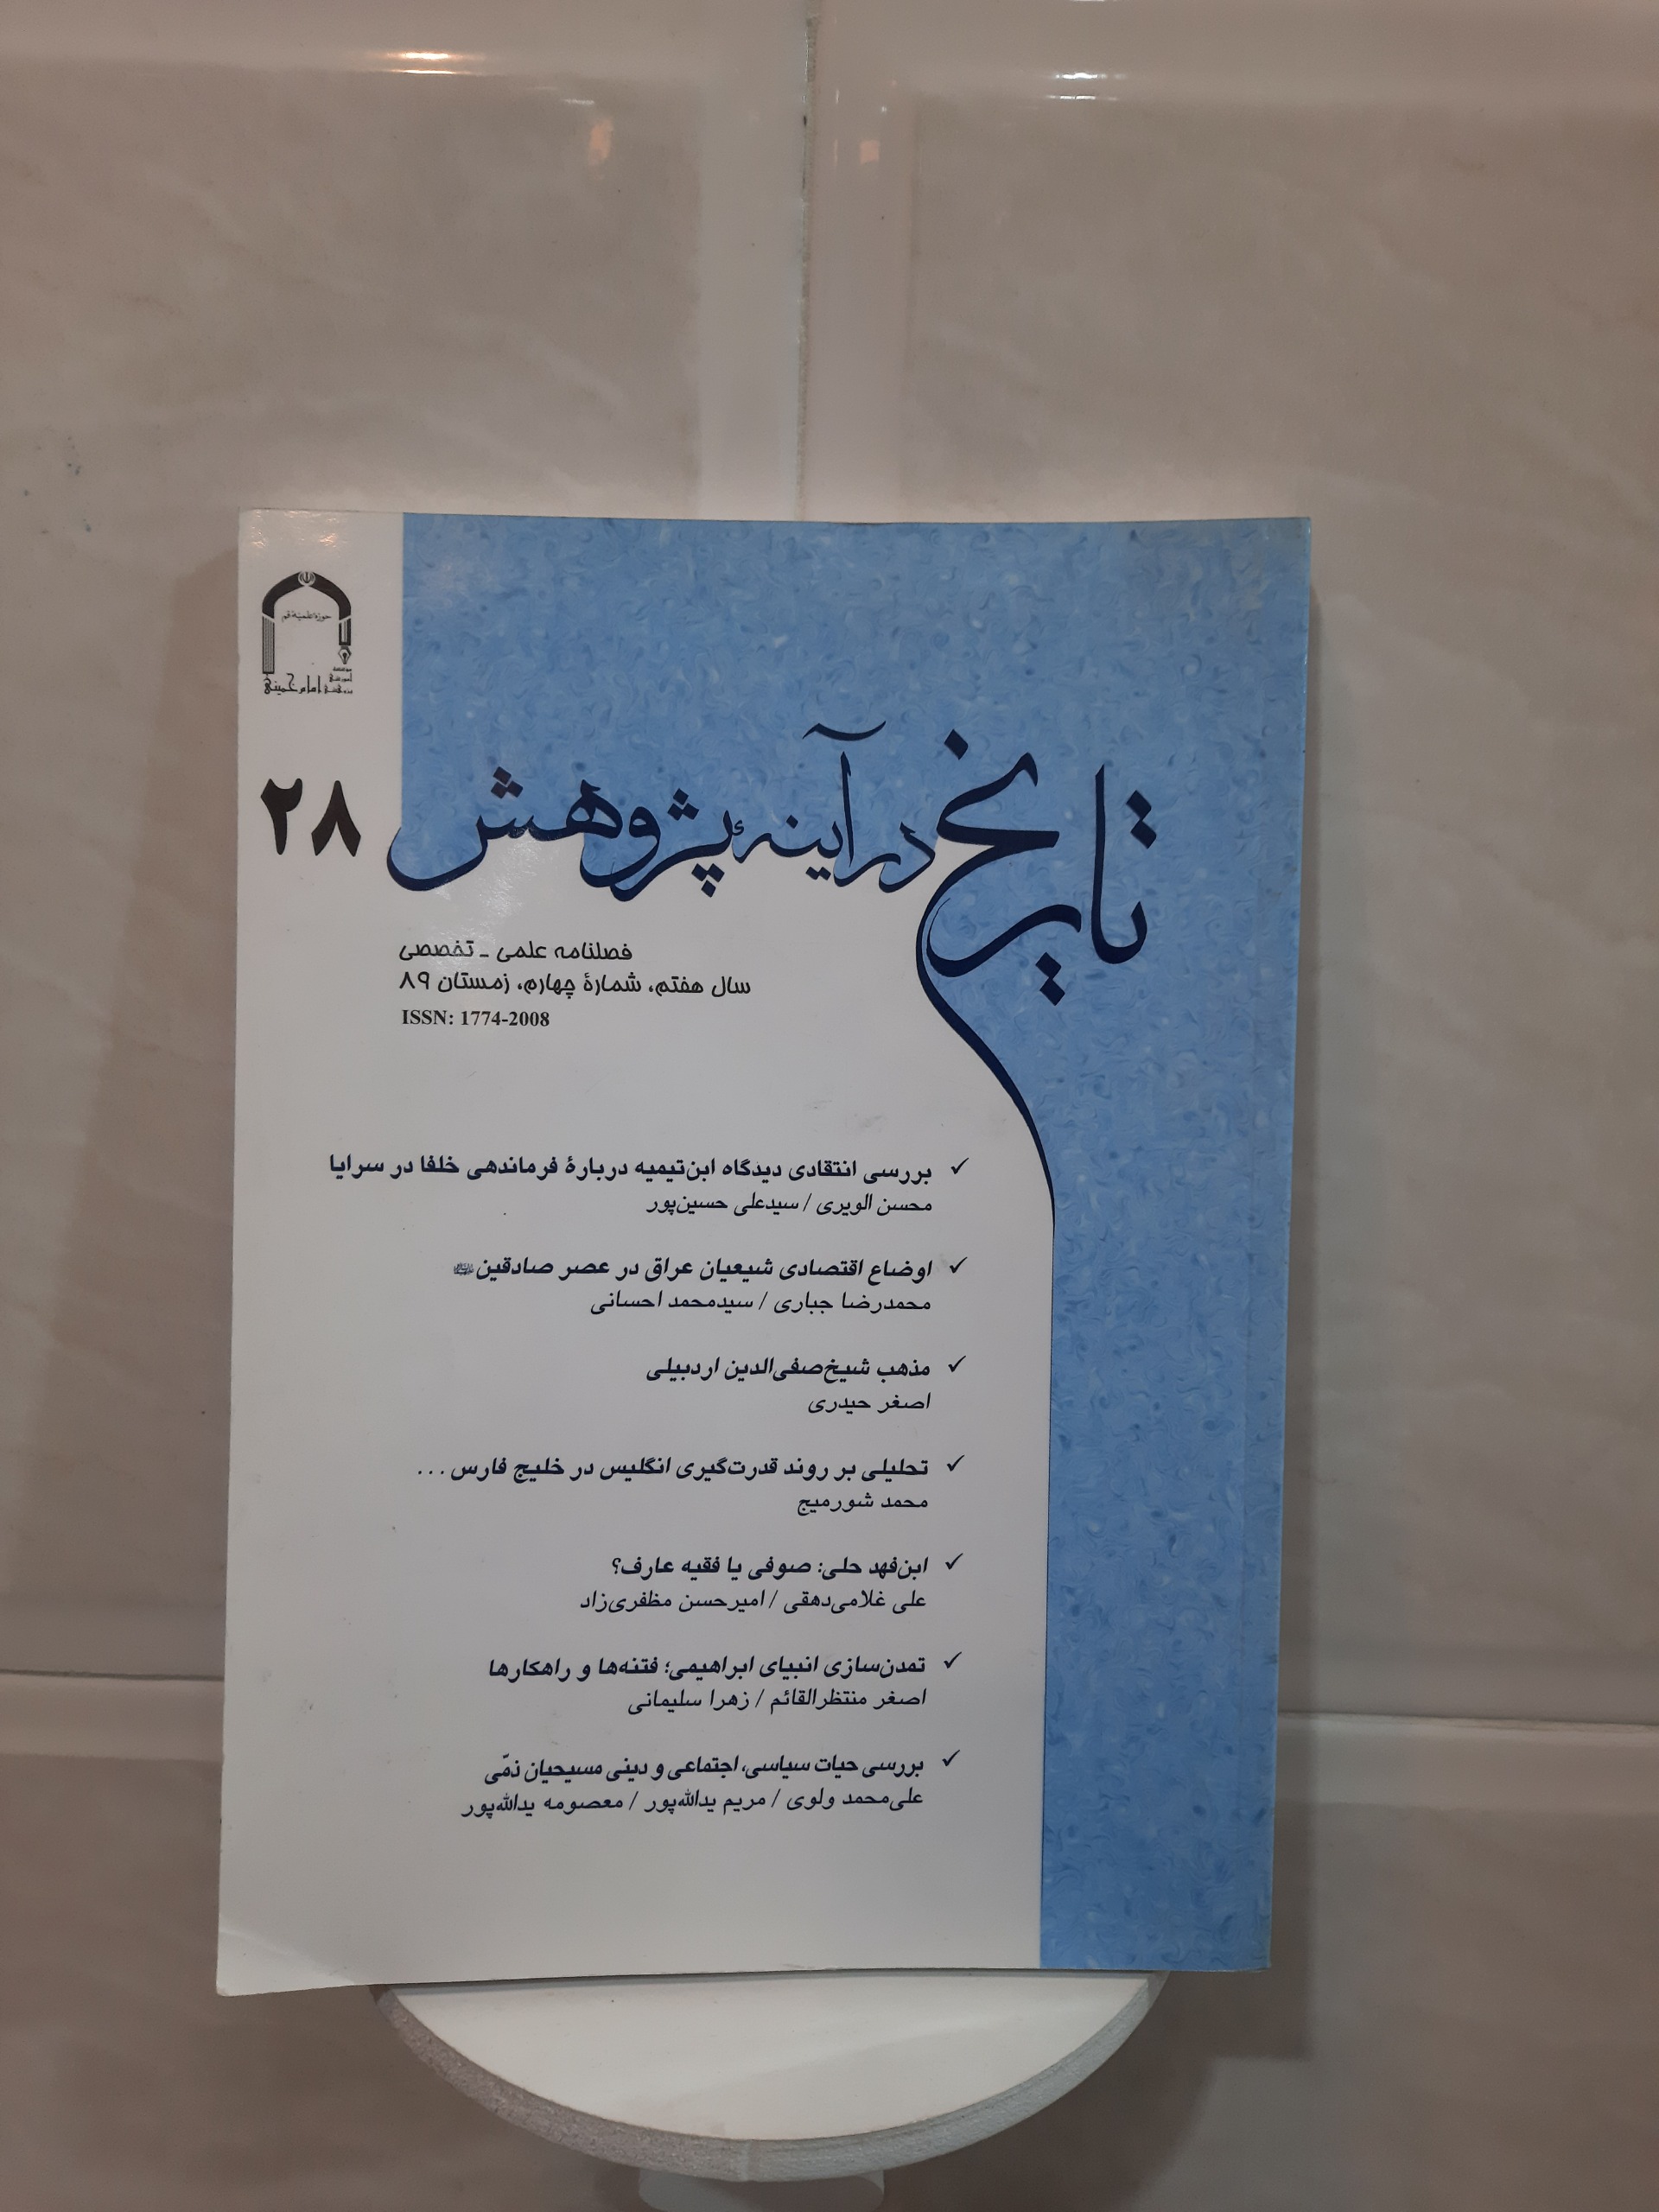 حوزه علمیه قم
موسسه
آموزشی
پژوهشی امام خمینی
تاریخ در آینه پژوهش
۲۸
فصلنامه علمی ـ تخصصی
سال هفتم، شمارهٔ چهارم، زمستان ۸۹
ISSN: 1774-2008
✓ بررسی انتقادی دیدگاه ابن‌تیمیه دربارهٔ فرماندهی خلفا در سرایا
محسن الویری / سیدعلی حسین‌پور
✓ اوضاع اقتصادی شیعیان عراق در عصر صادقین
محمدرضا جباری / سیدمحمد احسانی
✓ مذهب شیخ‌صفی‌الدین اردبیلی
اصغر حیدری
✓ تحلیلی بر روند قدرت‌گیری انگلیس در خلیج فارس ...
محمد شورمیج
✓ ابن‌فهد حلی: صوفی یا فقیه عارف؟
علی غلامی‌دهقی / امیرحسن مظفری‌زاد
✓ تمدن‌سازی انبیای ابراهیمی؛ فتنه‌ها و راهکارها
اصغر منتظرالقائم / زهرا سلیمانی
✓ بررسی حیات سیاسی، اجتماعی و دینی مسیحیان ذمّی
علی‌محمد ولوی / مریم یدالله‌پور / معصومه یدالله‌پور